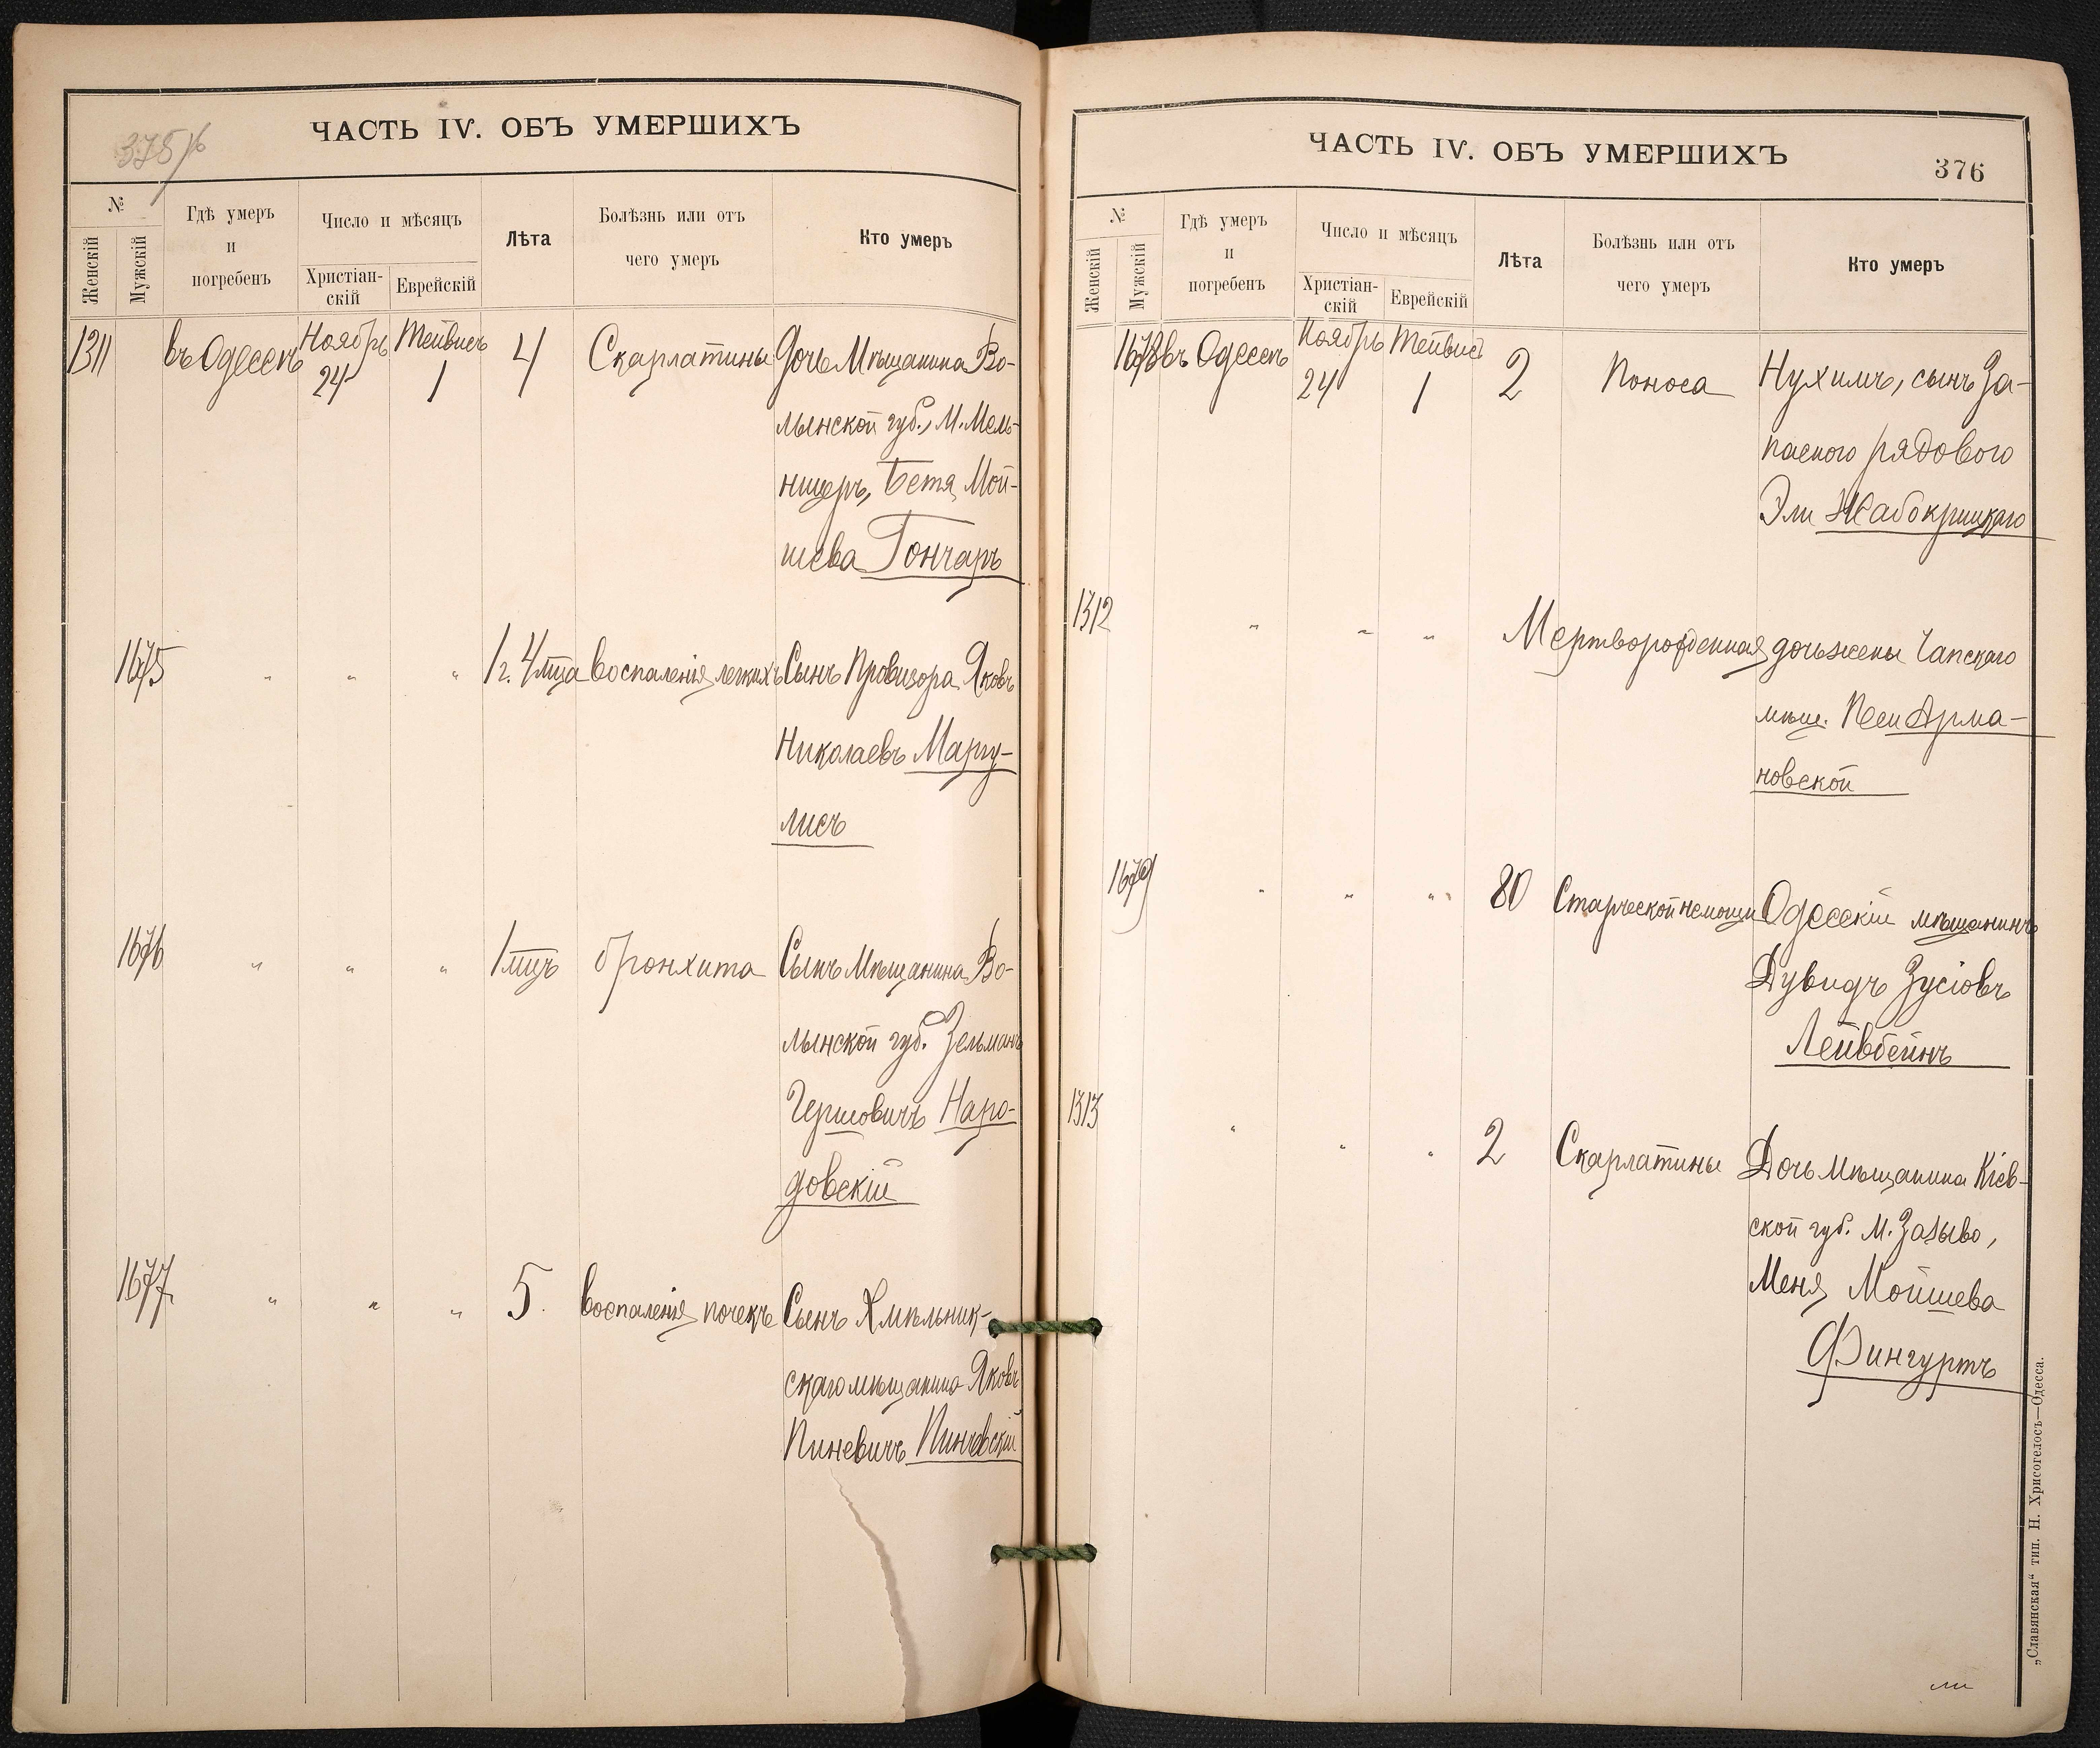 375/6
ЧАСТЬ IV. ОБЪ УМЕРШИХЪ
№
Женскій
Мужскій
Гдѣ умеръ
и
погребенъ
Число и мѣсяцъ
Христіан-
скій
Еврейскій
Лѣта
Болѣзнь или отъ
чего умеръ
Кто умеръ
1311 въ Одессѣ Ноябрь 24 Тейвисъ 1 4 Скарлатины Дочь Мѣщанина Во-
лынской губ., М. Мель-
ницеръ, Бетя Мой-
шева Гончаръ
1675 " " " 1 г. 4 мца воспаленія легкихъ Сынъ Провизора Яковъ
Николаевъ Маргу-
лисъ
1676 " " " 1 мцъ бронхита Сынъ Мѣщанина Во-
лынской губ. Зельманъ
Гершовичъ Наро-
довскій
1677 " " " 5 воспаленія почекъ Сынъ Хмѣльник-
скаго мѣщанина Яковъ
Пиневичъ Пинчевскій
ЧАСТЬ IV. ОБЪ УМЕРШИХЪ
376
№
Женскій
Мужскій
Гдѣ умеръ
и
погребенъ
Число и мѣсяцъ
Христіан-
скій
Еврейскій
Лѣта
Болѣзнь или отъ
чего умеръ
Кто умеръ
1678 въ Одессѣ Ноябрь 24 Тейвисъ 1 2 Поноса Нухимъ, сынъ За-
пасного рядового
Эли Жабокрицкаго
1312 " " " Мертворожденная дочь жены Чапскаго
мѣщ. Песи Арма-
новской
1679 " " " 80 Старческой немощи Одесскій мѣщанинъ
Дувидъ Зусіовъ
Лейвбейнъ
1313 " " " 2 Скарлатины Дочь мѣщанина Кіев-
ской губ. М.
Меня Мойшева
Фингуртъ
„Славянская“ тип. Н. Хрисогелосъ—Одесса.